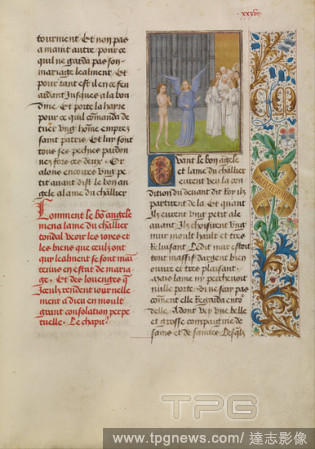 tourment Et non pas
a maint autre pour ce
quil ne garda pas son
mariage lealment Et
pour tant est il en ce feu
ardant Jusques a la bou
dine Et porte la haire
pour ce quil comanda de
tuer vng home emprez
saint patris Et lui sont
tous ses pechies pardon
nez fors ces deux Or
alons encores vng pe
tit auant dist le bon an
gele a lame du cheualier
Comment le bon angele
mena lame du cheualier
tondal veoir les ioies et
les biens que ceulx ont
qui lealment se sont main
tenus en estat de maria
ge Et des louenges que
Jceulx rendent iournele
ment a dieu en moult
grant consolation perpe
tuelle Le chapitre
Quant le bon angele
et lame du cheualier
eurent veu la con
dition du deuant dit Roy ilz
partirent de la Et quant
Ilz eurent vng petit ale
auant Ilz choisirent vng
mur moult hault et tres
Reluisant Ledit mur estoit
tout massif dargent bien
ouure et tres plaisant
Mais lame ny percheuoit
nulle porte Si ne scay pas
comment elle Regarda entour
delle Adont vey vne belle
et grosse compaignie de
sains et de saintes Lesquelz
TPG
www.tpgnews.com / 達志影像